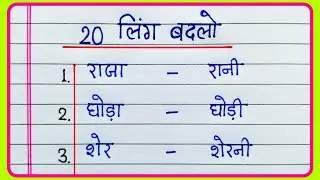 20 लिंग बदलो
1. राजा - रानी
2. घोड़ा - घोड़ी
3. शेर - शेरनी